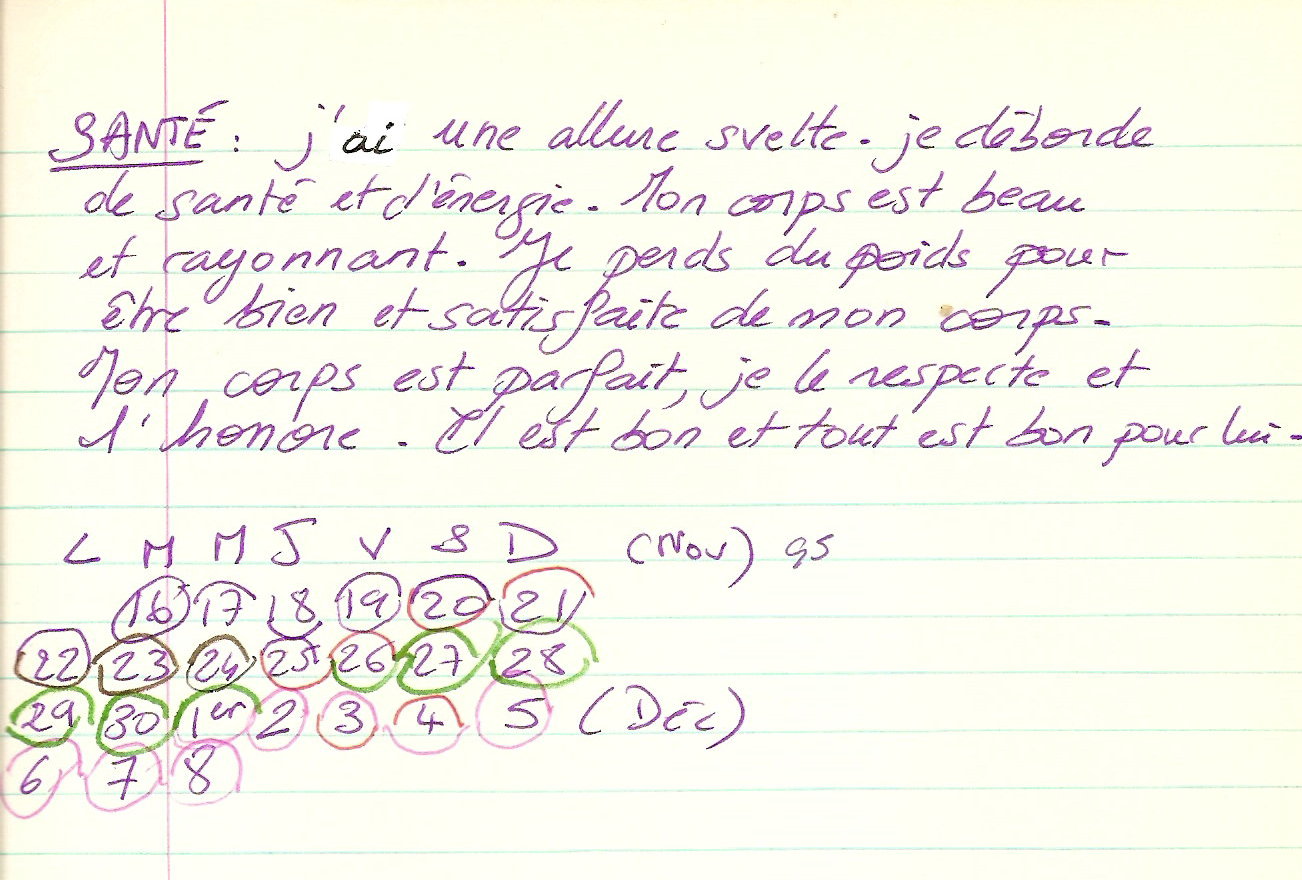 SANTÉ : j'ai une allure svelte. je déborde
de santé et d'énergie. Mon corps est beau
et rayonnant. Je perds du poids pour
être bien et satisfaite de mon corps.
Mon corps est parfait, je le respecte et
l'honore. Il est bon et tout est bon pour lui.
L M M J V S D (Nov) 95
16 17 18 19 20 21
22 23 24 25 26 27 28
29 30 1er 2 3 4 5 (Déc)
6 7 8